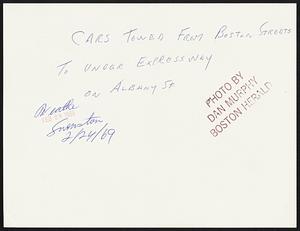 CARS TOWED FROM BOSTON STREETS
TO UNDER EXPRESSWAY
ON ALBANY ST
PHOTO BY
DAN MURPHY
BOSTON HERALD
2/24/69